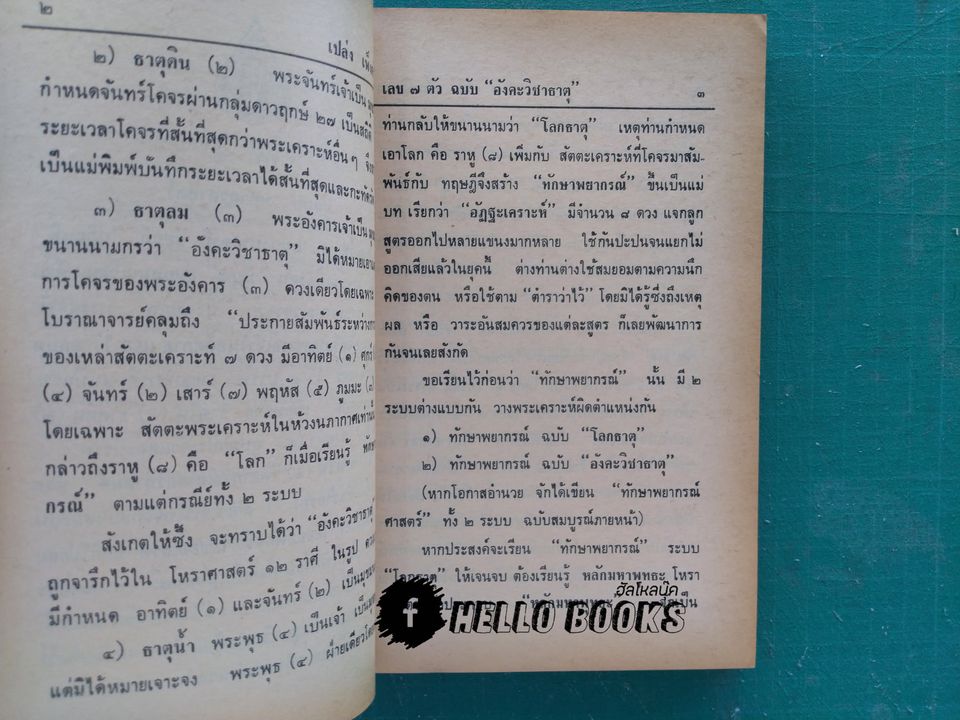 ๒
เปล่ง
๒) ธาตุดิน (๒) พระจันทร์เจ้าเป็น
กำหนดจันทร์โคจรผ่านกลุ่มดาวฤกษ์ ๒๗ เป็นสถิติ
ระยะเวลาโคจรที่สั้นที่สุดกว่าพระเคราะห์อื่นๆ
เป็นแม่พิมพ์บันทึกระยะเวลาได้สั้นที่สุดและกะทัดรัด
๓) ธาตุลม (๓) พระอังคารเจ้าเป็น
ขนานนามกรว่า “อังคะวิชาธาตุ” มิได้หมายเอา
การโคจรของพระอังคาร (๓) ดวงเดียวโดยเฉพาะ
โบราณาจารย์คลุมถึง “ประกายสัมพันธ์ระหว่าง
ของเหล่าสัตตะเคราะห์ ๗ ดวง มีอาทิตย์ (๑) ศุกร์
(๔) จันทร์ (๒) เสาร์ (๗) พฤหัส (๕) ภูมมะ
โดยเฉพาะ สัตตะพระเคราะห์ในห้วงนภากาศเท่านั้น
กล่าวถึงราหู (๘) คือ “โลก” ก็เมื่อเรียนรู้
กรณ์” ตามแต่กรณีย์ทั้ง ๒ ระบบ
สังเกตให้ซึ้ง จะทราบได้ว่า “อังคะวิชาธาตุ
ถูกจารึกไว้ใน โหราศาสตร์ ๑๒ ราศี ในรูป
มีกำหนด อาทิตย์ (๑) และจันทร์ (๒) เป็น
๔) ธาตุน้ำ พระพุธ (๔) เป็นเจ้า
แต่มิได้หมายเจาะจง พระพุธ (๔) ฝ่ายเดียว
เลข ๗ ตัว ฉบับ “อังคะวิชาธาตุ” ๓
ท่านกลับให้ขนานนามว่า “โลกธาตุ” เหตุท่านกำหนด
เอาโลก คือ ราหู (๘) เพิ่มกับ สัตตะเคราะห์ที่โคจรมาสัม-
พันธ์กับ ทฤษฎีจึงสร้าง “ทักษาพยากรณ์” ขึ้นเป็นแม่
บท เรียกว่า “อัฏฐะเคราะห์” มีจำนวน ๘ ดวง แจกลูก
สูตรออกไปหลายแขนงมากหลาย ใช้กันปะปนจนแยกไม่
ออกเสียแล้วในยุคนี้ ต่างท่านต่างใช้สมยอมตามความนึก
คิดของตน หรือใช้ตาม “ตำราว่าไว้” โดยมิได้รู้ซึ้งถึงเหตุ
ผล หรือ วาระอันสมควรของแต่ละสูตร ก็เลยพัฒนาการ
กันจนเลยสังกัด
ขอเรียนไว้ก่อนว่า “ทักษาพยากรณ์” นั้น มี ๒
ระบบต่างแบบกัน วางพระเคราะห์ผิดตำแหน่งกัน
๑) ทักษาพยากรณ์ ฉบับ “โลกธาตุ”
๒) ทักษาพยากรณ์ ฉบับ “อังคะวิชาธาตุ”
(หากโอกาสอำนวย จักได้เขียน “ทักษาพยากรณ์
ศาสตร์” ทั้ง ๒ ระบบ ฉบับสมบูรณ์ภายหน้า)
หากประสงค์จะเรียน “ทักษาพยากรณ์” ระบบ
“โลกธาตุ” ให้เจนจบ ต้องเรียนรู้ หลักมหาพุทธะ โหรา
ฮัลโหลบุ๊ค
f HELLO BOOKS